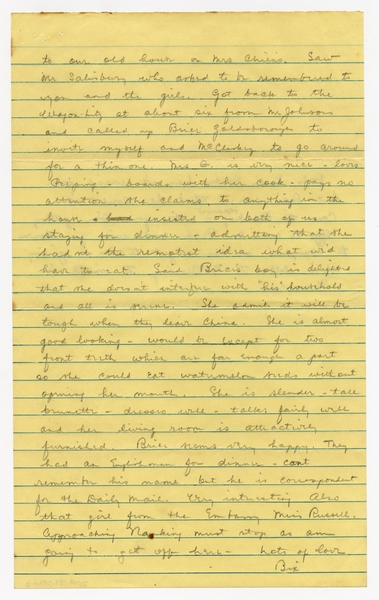 to our old house on Mrs Chiens. Saw
Mr Salisbury who asked to be remembered to
you and the girls. Got back to the
at about six from Mr Johnsons
and called up Brier Goldsborough to
invite myself and McCluskey to go around
for a thin one. Mrs G. is very nice - loves
Peiping - boards with her cook - pays no
attention, she claims, to anything in the
house - insisted on both of us
staying for dinner - admitting that she
hadn't the remotest idea what we'd
have to eat. Said Brier's boy is delighted
that she doesn't interfere with "his" household
and all is serene. She admits it will be
tough when they leave China. She is almost
good looking - would be except for two
front teeth which are far enough a part
so she could eat watermelon seeds without
opening her mouth. She is slender - tall
brunette - dresses well - talks fairly well
and her living room is attractively
furnished. Brier seems very happy. They
had an Englishman for dinner - cant
remember his name but he is correspondent
for the Daily Mail. Very interesting. Also
that girl from the Embassy Miss Russell.
Approaching Nanking must stop as am
going to get off here - Lots of love
Bix